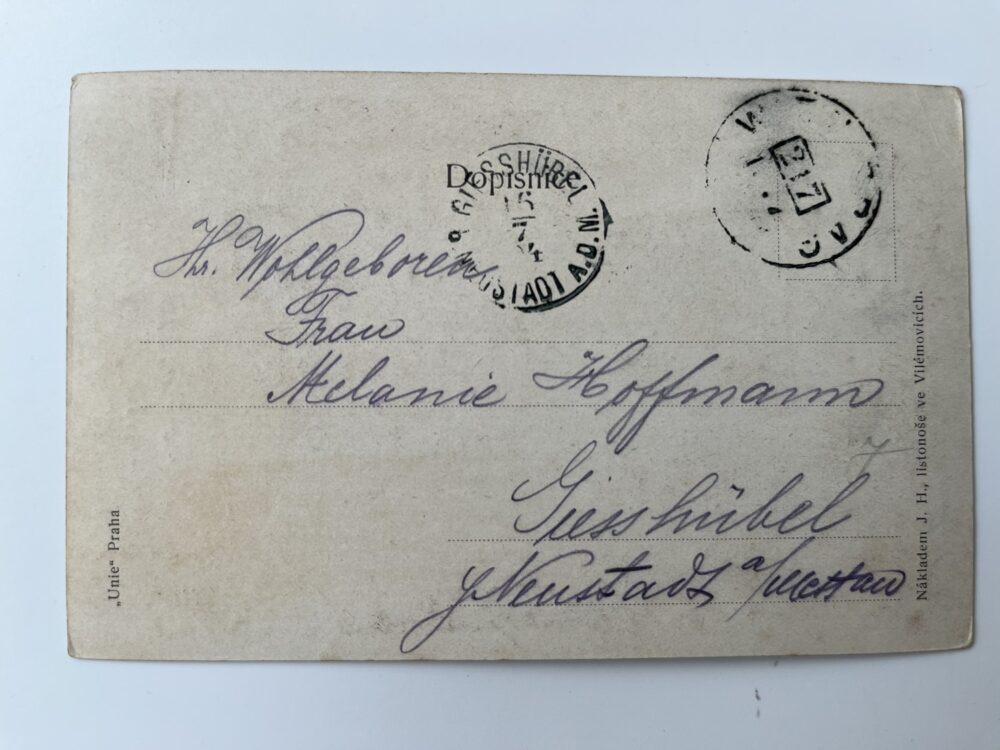 Dopisnice
GIESSHÜBEL
15
7
4
NEUSTADT A.D.M.
217
Ihr. Wohlgeboren
Frau
Melanie Hoffmann
Giesshübel
Neustadt a/Mettau
„Unie“ Praha
Nákladem J. H., listonoše ve Vilémovicích.